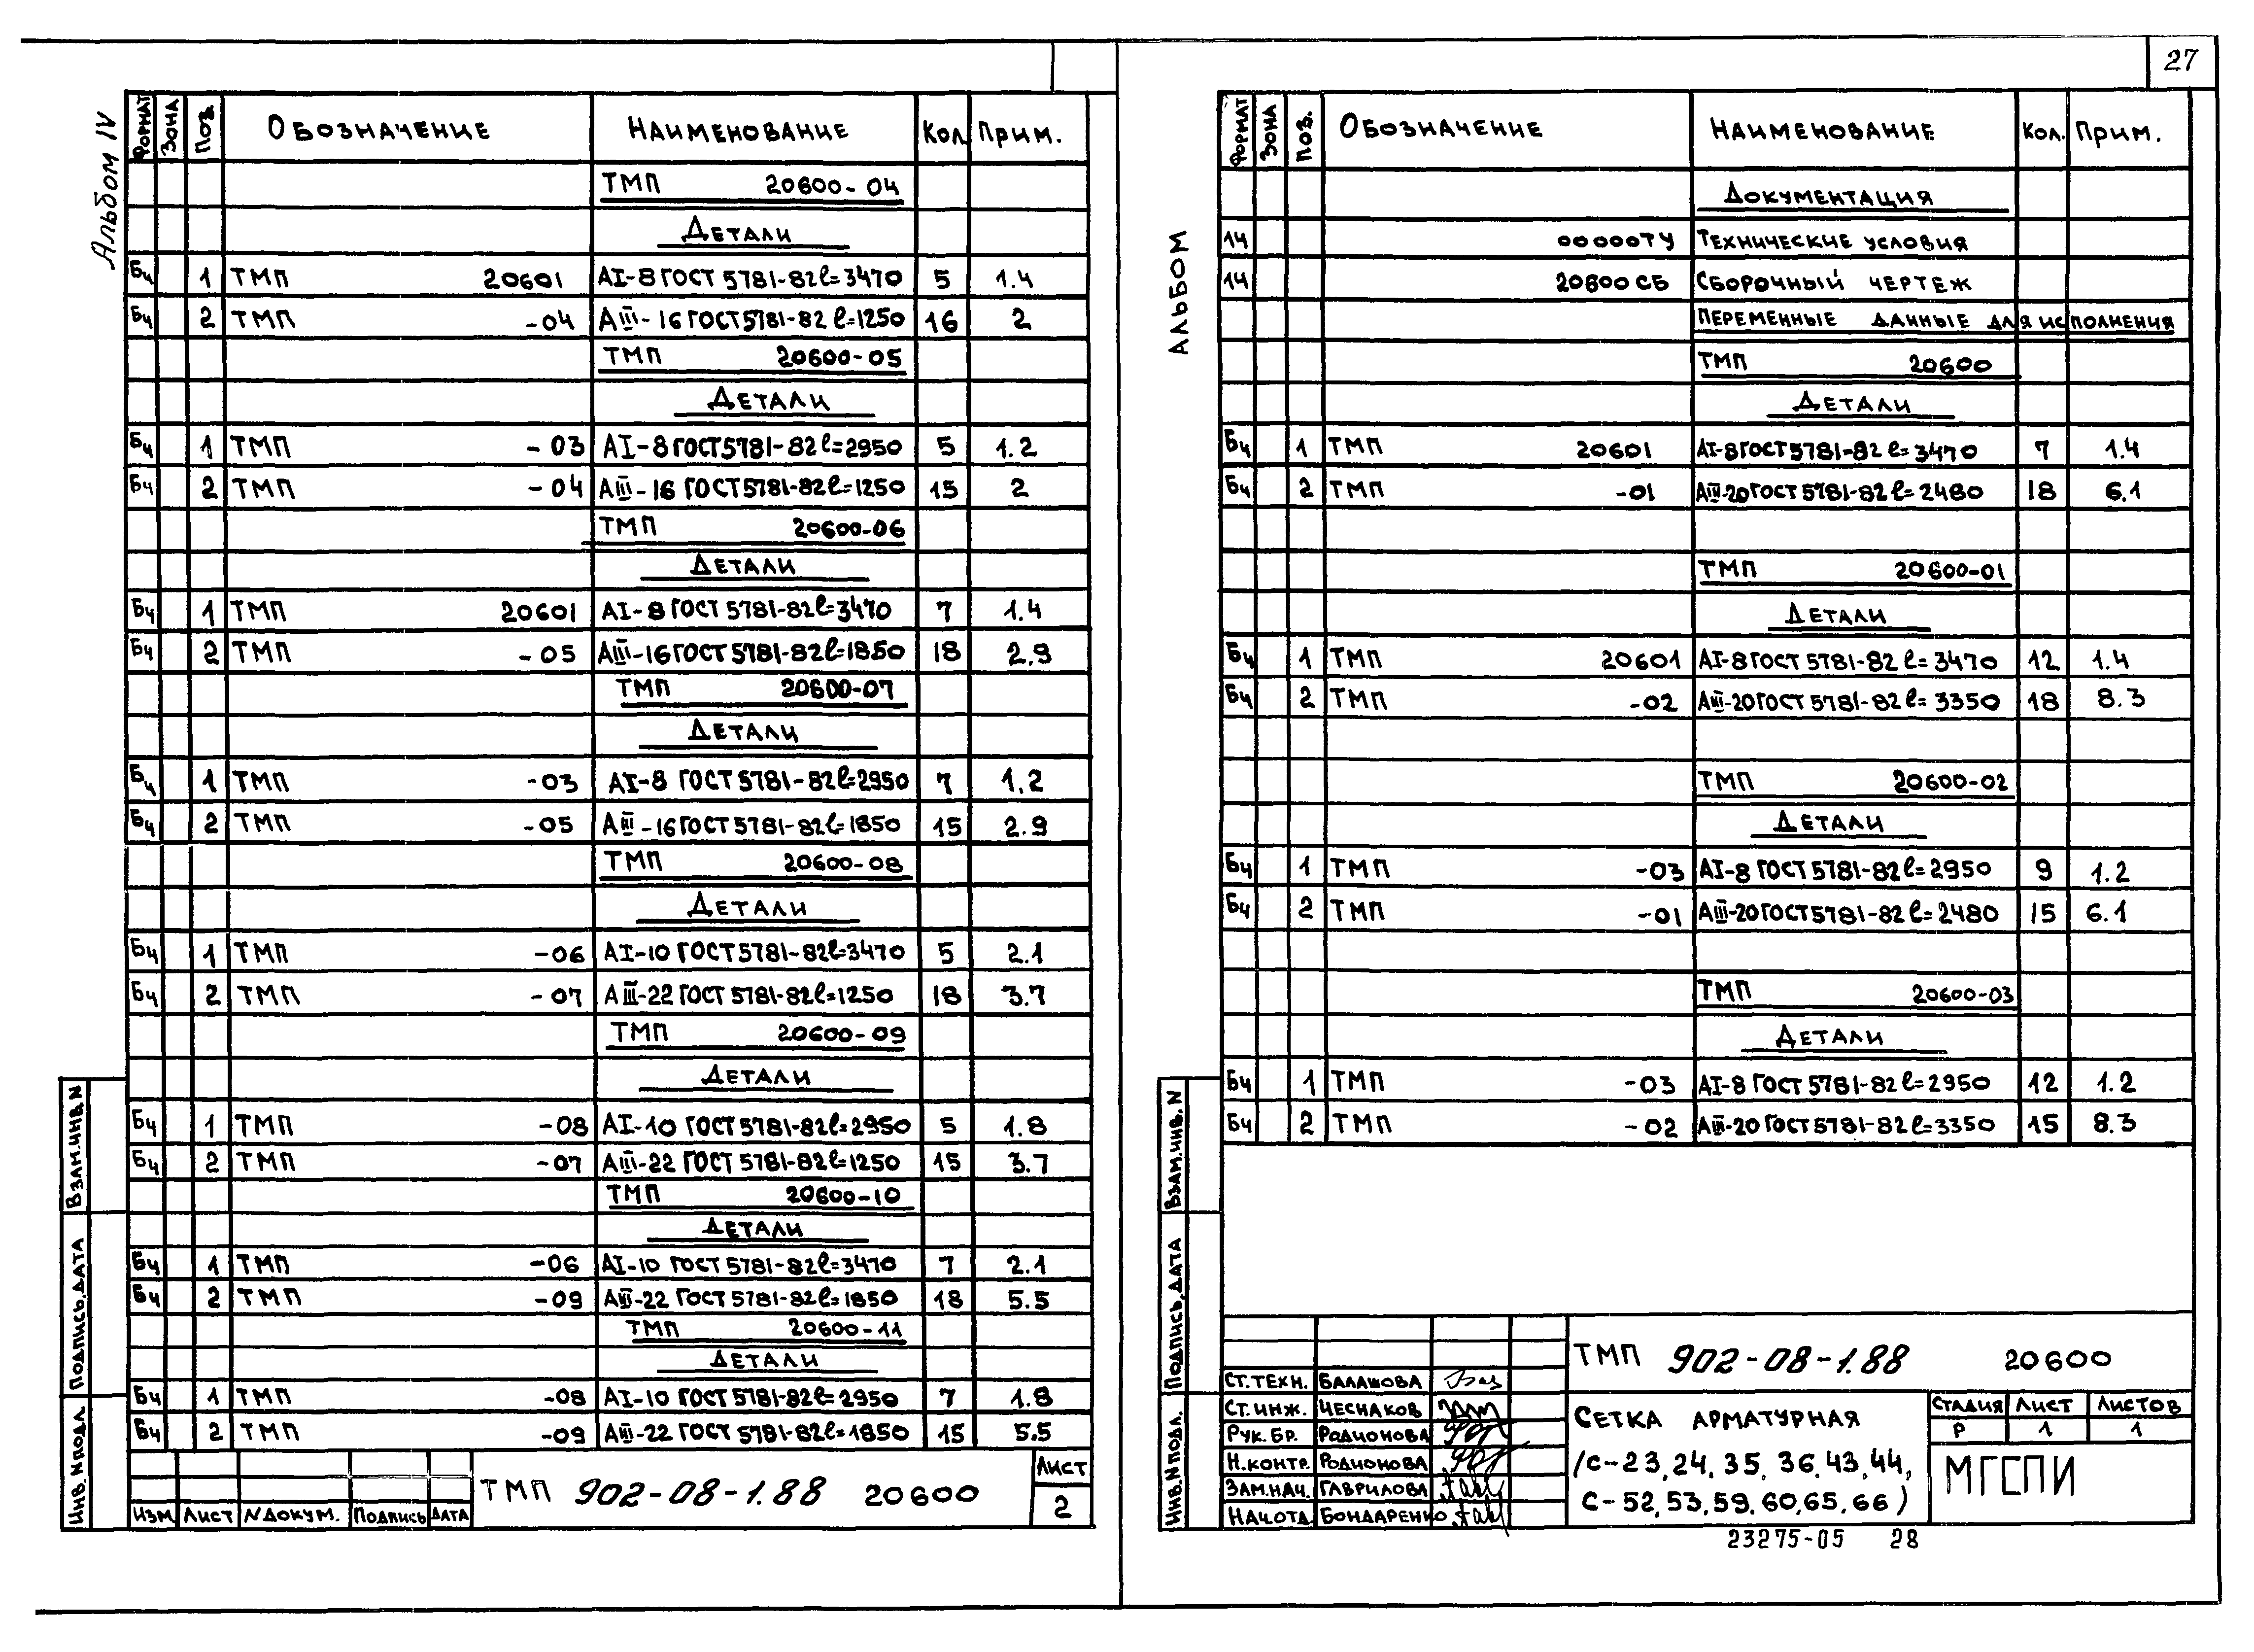 27
Альбом IV
Формат Зона Поз. Обозначение Наименование Кол. Прим.
ТМП 20600-04
Детали
Бч 1 ТМП 20601 АI-8 ГОСТ 5781-82 ℓ=3470 5 1.4
Бч 2 ТМП -04 АIII-16 ГОСТ 5781-82 ℓ=1250 16 2
ТМП 20600-05
Детали
Бч 1 ТМП -03 АI-8 ГОСТ 5781-82 ℓ=2950 5 1.2
Бч 2 ТМП -04 АIII-16 ГОСТ 5781-82 ℓ=1250 15 2
ТМП 20600-06
Детали
Бч 1 ТМП 20601 АI-8 ГОСТ 5781-82 ℓ=3470 7 1.4
Бч 2 ТМП -05 АIII-16 ГОСТ 5781-82 ℓ=1850 18 2.9
ТМП 20600-07
Детали
Бч 1 ТМП -03 АI-8 ГОСТ 5781-82 ℓ=2950 7 1.2
Бч 2 ТМП -05 АIII-16 ГОСТ 5781-82 ℓ=1850 15 2.9
ТМП 20600-08
Детали
Бч 1 ТМП -06 АI-10 ГОСТ 5781-82 ℓ=3470 5 2.1
Бч 2 ТМП -07 АIII-22 ГОСТ 5781-82 ℓ=1250 18 3.7
ТМП 20600-09
Детали
Бч 1 ТМП -08 АI-10 ГОСТ 5781-82 ℓ=2950 5 1.8
Бч 2 ТМП -07 АIII-22 ГОСТ 5781-82 ℓ=1250 15 3.7
ТМП 20600-10
Детали
Бч 1 ТМП -06 АI-10 ГОСТ 5781-82 ℓ=3470 7 2.1
Бч 2 ТМП -09 АIII-22 ГОСТ 5781-82 ℓ=1850 18 5.5
ТМП 20600-11
Детали
Бч 1 ТМП -08 АI-10 ГОСТ 5781-82 ℓ=2950 7 1.8
Бч 2 ТМП -09 АIII-22 ГОСТ 5781-82 ℓ=1850 15 5.5
Изм Лист N докум. Подпись Дата
ТМП 902-08-1.88 20600
Лист
2
Взам.инв.N
Подпись.дата
Инв.N подл.
Альбом
Формат Зона Поз. Обозначение Наименование Кол. Прим.
Документация
14 00000ТУ Технические условия
14 20600СБ Сборочный чертеж
Переменные данные для исполнения
ТМП 20600
Детали
Бч 1 ТМП 20601 АI-8 ГОСТ 5781-82 ℓ=3470 7 1.4
Бч 2 ТМП -01 АIII-20 ГОСТ 5781-82 ℓ=2480 18 6.1
ТМП 20600-01
Детали
Бч 1 ТМП 20601 АI-8 ГОСТ 5781-82 ℓ=3470 12 1.4
Бч 2 ТМП -02 АIII-20 ГОСТ 5781-82 ℓ=3350 18 8.3
ТМП 20600-02
Детали
Бч 1 ТМП -03 АI-8 ГОСТ 5781-82 ℓ=2950 9 1.2
Бч 2 ТМП -01 АIII-20 ГОСТ 5781-82 ℓ=2480 15 6.1
ТМП 20600-03
Детали
Бч 1 ТМП -03 АI-8 ГОСТ 5781-82 ℓ=2950 12 1.2
Бч 2 ТМП -02 АIII-20 ГОСТ 5781-82 ℓ=3350 15 8.3
Взам.инв.N
Подпись.дата
Инв.N подл.
ТМП 902-08-1.88 20600
Ст.техн. Балашова
Ст.инж. Чеснаков
Рук.бр. Радионова
Н.контр. Родионова
Зам.нач. Гаврилова
Нач.отд. Бондаренко
Сетка арматурная
/С-23,24,35,36,43,44,
С-52,53,59,60,65,66)
Стадия Лист Листов
Р 1 1
МГСПИ
23275-05 28